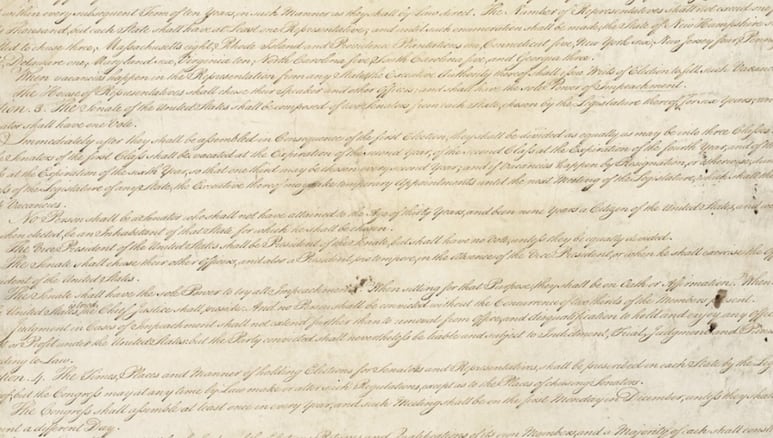 within every subsequent Term of ten Years, in such Manner as they shall by Law direct. The Number of Representatives shall not exceed one
Thousand, but each State shall have at Least one Representative; and until such enumeration shall be made, the State of New Hampshire
to chuse three, Massachusetts eight, Rhode Island and Providence Plantations one, Connecticut five, New York six, New Jersey four,
Delaware one, Maryland six, Virginia ten, North Carolina five, South Carolina five, and Georgia three.
When vacancies happen in the Representation from any State, the Executive Authority thereof shall issue Writs of Election to fill such
The House of Representatives shall chuse their Speaker and other Officers; and shall have the sole Power of Impeachment.
3. The Senate of the United States shall be composed of two Senators from each State, chosen by the Legislature thereof, for six Years; and
shall have one Vote.
Immediately after they shall be assembled in Consequence of the first Election, they shall be divided as equally as may be into three Classes
Senators of the first Class shall be vacated at the Expiration of the second Year, of the second Class at the Expiration of the fourth Year, and of
at the Expiration of the sixth Year, so that one third may be chosen every second Year; and if Vacancies happen by Resignation, or otherwise,
of the Legislature of any State, the Executive thereof may make temporary Appointments until the next Meeting of the Legislature, which shall
Vacancies.
No Person shall be a Senator who shall not have attained to the Age of thirty Years, and been nine Years a Citizen of the United States, and
when elected, be an Inhabitant of that State for which he shall be chosen.
The Vice President of the United States shall be President of the Senate, but shall have no Vote, unless they be equally divided.
The Senate shall chuse their other Officers, and also a President pro tempore, in the Absence of the Vice President, or when he shall exercise the
of the United States.
The Senate shall have the sole Power to try all Impeachments. When sitting for that Purpose, they shall be on Oath or Affirmation. When
United States is tried, the Chief Justice shall preside: And no Person shall be convicted without the Concurrence of two thirds of the Members present.
Judgment in Cases of Impeachment shall not extend further than to removal from Office, and disqualification to hold and enjoy any
or Profit under the United States: but the Party convicted shall nevertheless be liable and subject to Indictment, Trial, Judgment and
to Law.
4. The Times, Places and Manner of holding Elections for Senators and Representatives, shall be prescribed in each State by the
but the Congress may at any time by Law make or alter such Regulations, except as to the Places of chusing Senators.
The Congress shall assemble at least once in every Year, and such Meeting shall be on the first Monday in December, unless they shall
a different Day.
and Qualifications of its own Members, and a Majority of each shall